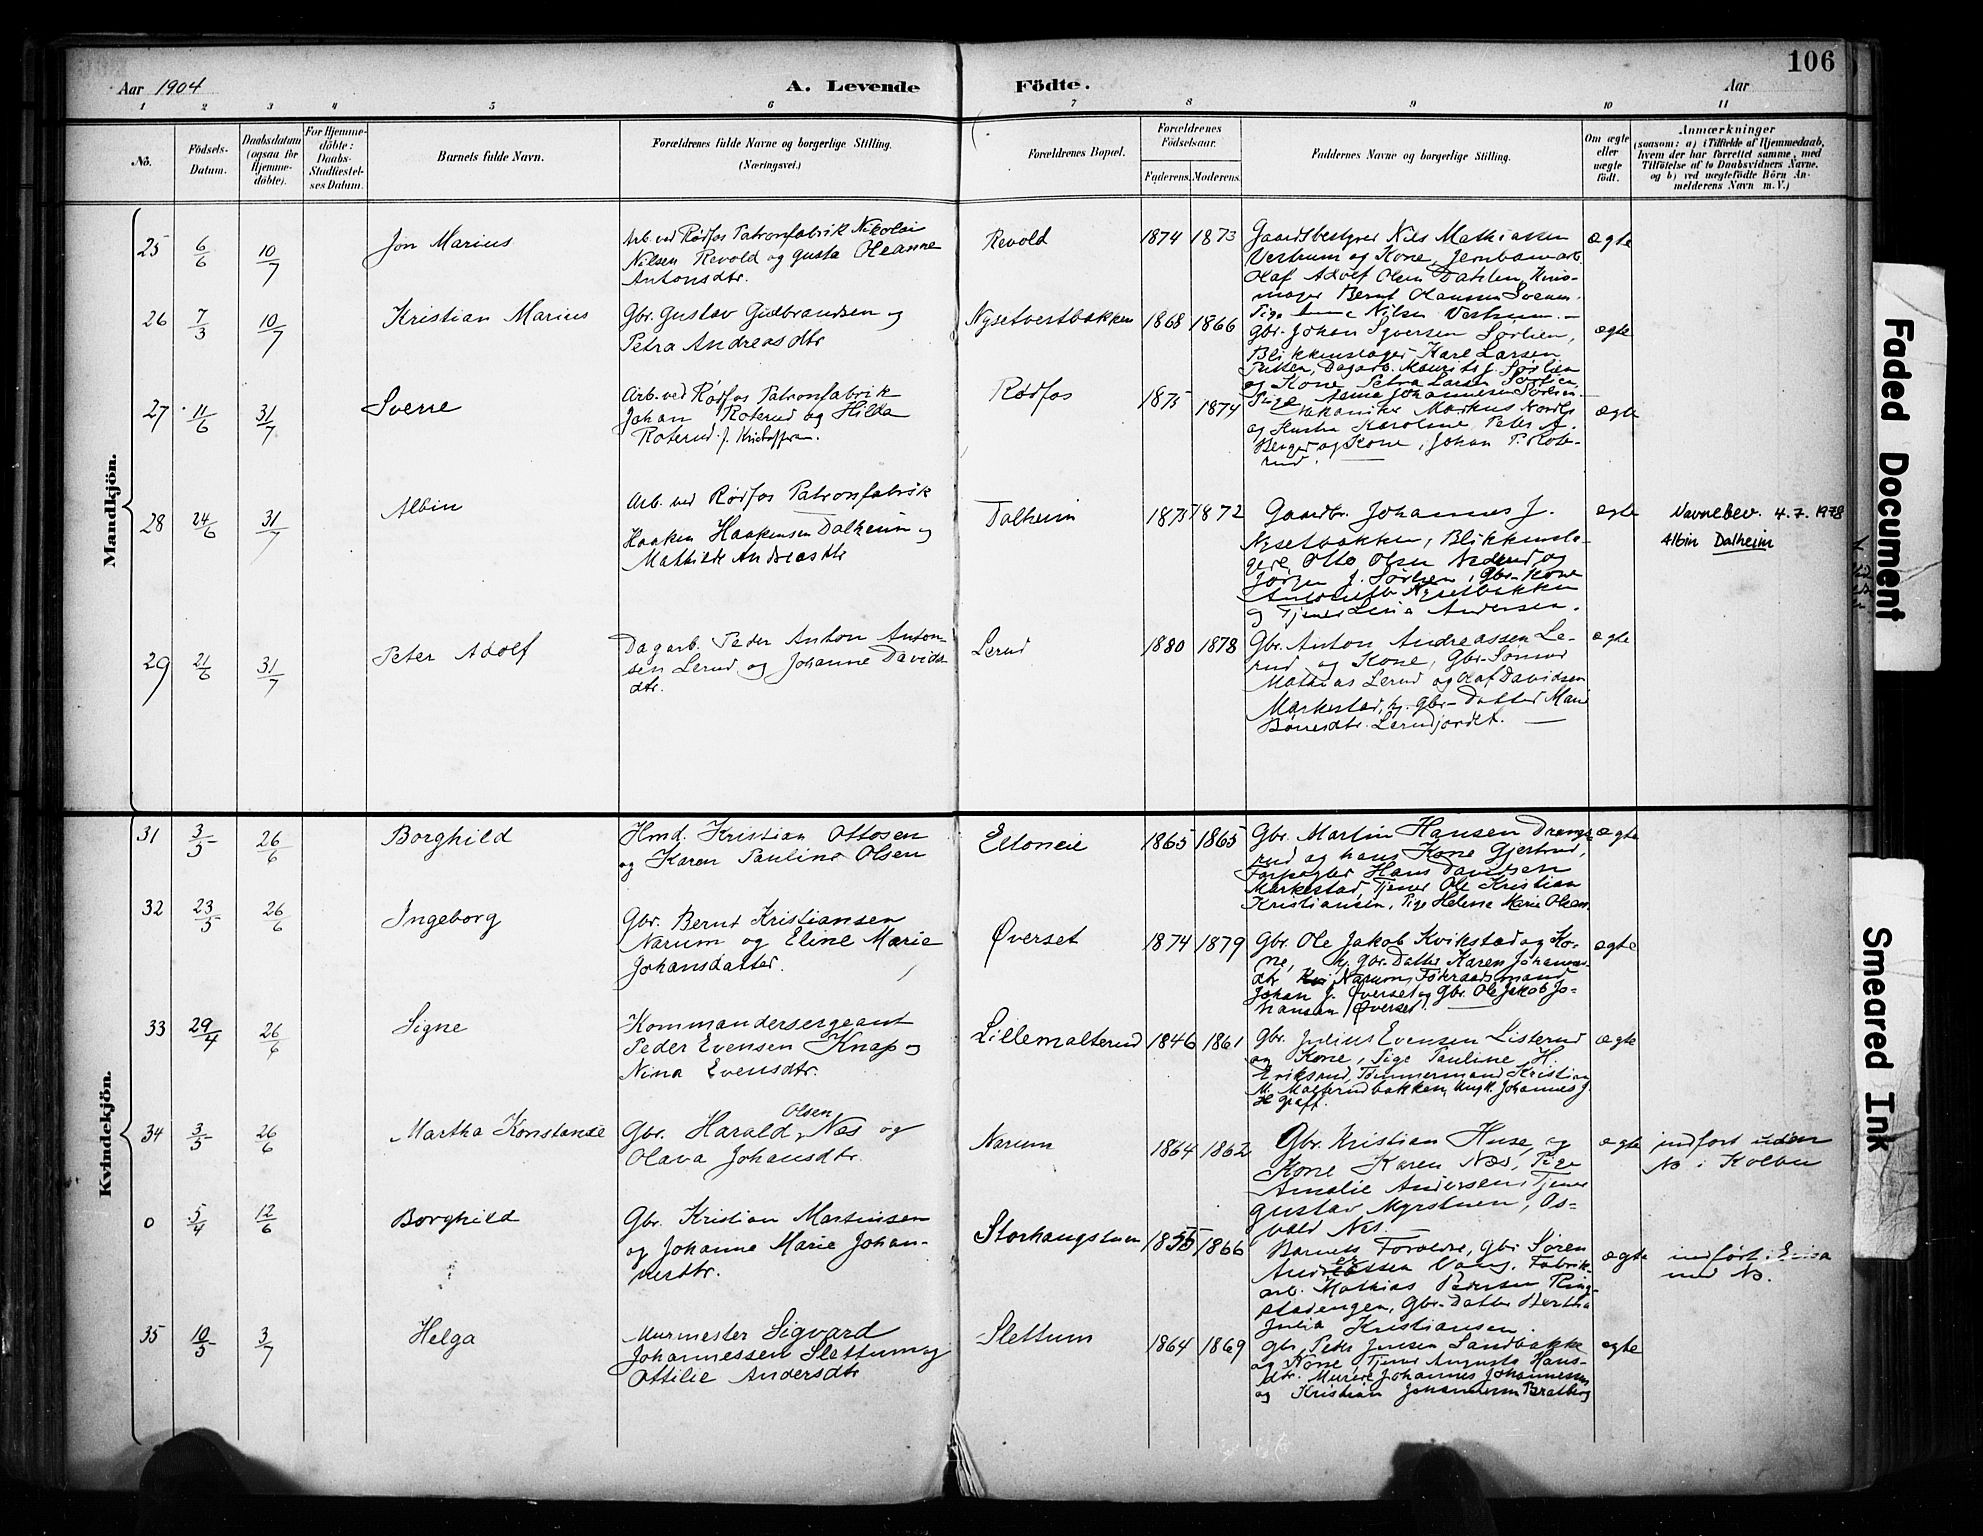 106
Aar 1904
A. Levende
Födte.
Aar
1 2 3 4 5 6 7 8 9 10 11
No.
Födsels-
Datum.
Daabsdatum
(ogsaa for
Hjemme-
döbte).
For Hjemme-
döbte:
Daabs-
Stadfæstel-
ses Datum.
Barnets fulde Navn.
Forældrenes fulde Navne og borgerlige Stilling.
(Næringsvei.)
Forældrenes Bopæl.
Forældrenes
Födselsaar.
Faderens. Moderens.
Faddernes Navne og borgerlige Stilling.
Om ægte
eller
uægte
födt.
Anmærkninger
(saasom: a) i Tilfælde af Hjemmedaab,
hvem der har forrettet samme, med
Tilföielse af to Daabsvidners Navne,
og b) ved uægtefödte Börn An-
melderens Navn m. V.)
Mandkjön.
25 6/6 10/7 Jon Marius
Arb. ved Rødfos Patronfabrik Nikolai
Nilsen Revold og Gusta Oleanne
Antonsdtr.
Revold 1874 1873
Gaardsbestyrer Nils Mathiassen
Vestrum og Kone, Jernbanearb.
Olaf Adolf Olsen Dahlen, Hus-
mager Bernt Olaussen Sveum.
Pige Nilsen Vestrum. —
ægte
26 7/3 10/7 Kristian Marius
Gbr. Gustav Gudbrandsen og
Petra Andreasdtr
Nysetvestbakken 1868 1866
Gbr. Johan Syversen Sørlien,
Blikkenslager Karl Larsen
Dagarb. Maurits J. Sørlien
og Kone Petra Larsen Sørlien
Pige Anne Johannesen Sørlien
ægte
27 11/6 31/7 Sverre
Arb. ved Rødfos Patronfabrik
Johan Roterud og Hilda
Roterud f. Kristoffersen.
Rødfos 1875 1874
Mekaniker Markus Nordli
og Hustru Karoline, Peter A.
Berger og Kone, Johan P. Rote-
rud.
ægte
28 24/6 31/7 Albin
Arb. ved Rødfos Patronfabrik
Haaken Haakensen Dalheim og
Mathilde Andreasdtr
Dalheim 1875 1872
Gaardbr. Johannes J.
Nysetbakken, Blikkensla-
gerl. Otto Olsen Nederud og
Jørgen J. Sørlien, Gbr.-Kone
Nysetbakken
og Tjener Lina Andersen.
ægte
Navnebev. 4.7.1978
Albin Dalheim
29 21/6 31/7 Peter Adolf
Dagarb. Peder Anton Anton-
sen Lerud og Johanne Davids-
dtr.
Lerud 1880 1878
Gbr. Anton Andreassen Le-
rud og Kone, Gbr-Sønner
Mathias Lerud og Olaf Davidsen
Markestad, hj. gbr-Datter Marie
Lerudjordet. —
ægte
Kvindekjön.
31 3/5 26/6 Borghild
Hmd. Kristian Ottosen
og Karen Pauline Olsen
Eltoneie 1865 1865
Gbr. Martin Hansen Drangs-
rud og hans Kone Gjertrud,
Forpagter Hans Davidsen
Markestad, Tjener Ole Kristian
Kristiansen, Pige Helene Marie Olsen.
ægte
32 23/5 26/6 Ingeborg
Gbr. Bernt Kristiansen
Narum og Eline Marie
Johansdatter.
Øverset 1874 1879
Gbr. Ole Jakob Kvikstad og Ko-
ne, hj. gbr-Datter Karen Johannes-
dtr. Narum, Føderaadsmand
Johan J. Øverset og Gbr. Ole Jakob Jo-
hansen Øverset.
ægte
33 29/4 26/6 Signe
Kommandersergeant
Peder Evensen Knap og
Nina Evensdtr.
Lillemalterud 1846 1861
Gbr. Julius Evensen Listerud
og Kone, Pige Pauline H.
Eriksrud, Tømmermand Kristian
M. Malterudbakken, Ungk. Johannes J
ægte
34 3/5 26/6 Martha Konstanse
Gbr. Harald Olsen Næs og
Olava Johansdtr.
Narum 1864 1862
Gbr. Kristian Huse og
Kone Karen Næs, Pige
Amalie Andersen, Tjener
Gustav Myrstuen, Os-
vald Næs.
ægte
indført uden
No i Kolbu
0 5/4 12/6 Borghild
Gbr. Kristian Martinsen
og Johanne Marie Johan-
nesdtr.
Storhaugstuen 1855 1866
Barnets Forældre, Gbr. Søren
Andreassen Vang, Fabrik-
arb. Mathias Pedersen Ring-
stadengen, Gbr-Datter Bertha
Julia Kristiansen.
ægte
indført i Eina
med No.
35 10/5 3/7 Helga
Murmester Sigvard
Johannessen Slettum og
Ottilie Andersdtr
Slettum 1864 1869
Gbr. Peter Jensen Sandbakke
og Kone, Tjener Augusta Hans-
dtr. Murere Johannes Johannessen
og Kristian Johannessen Bratberg
ægte
Faded Document
Smeared Ink